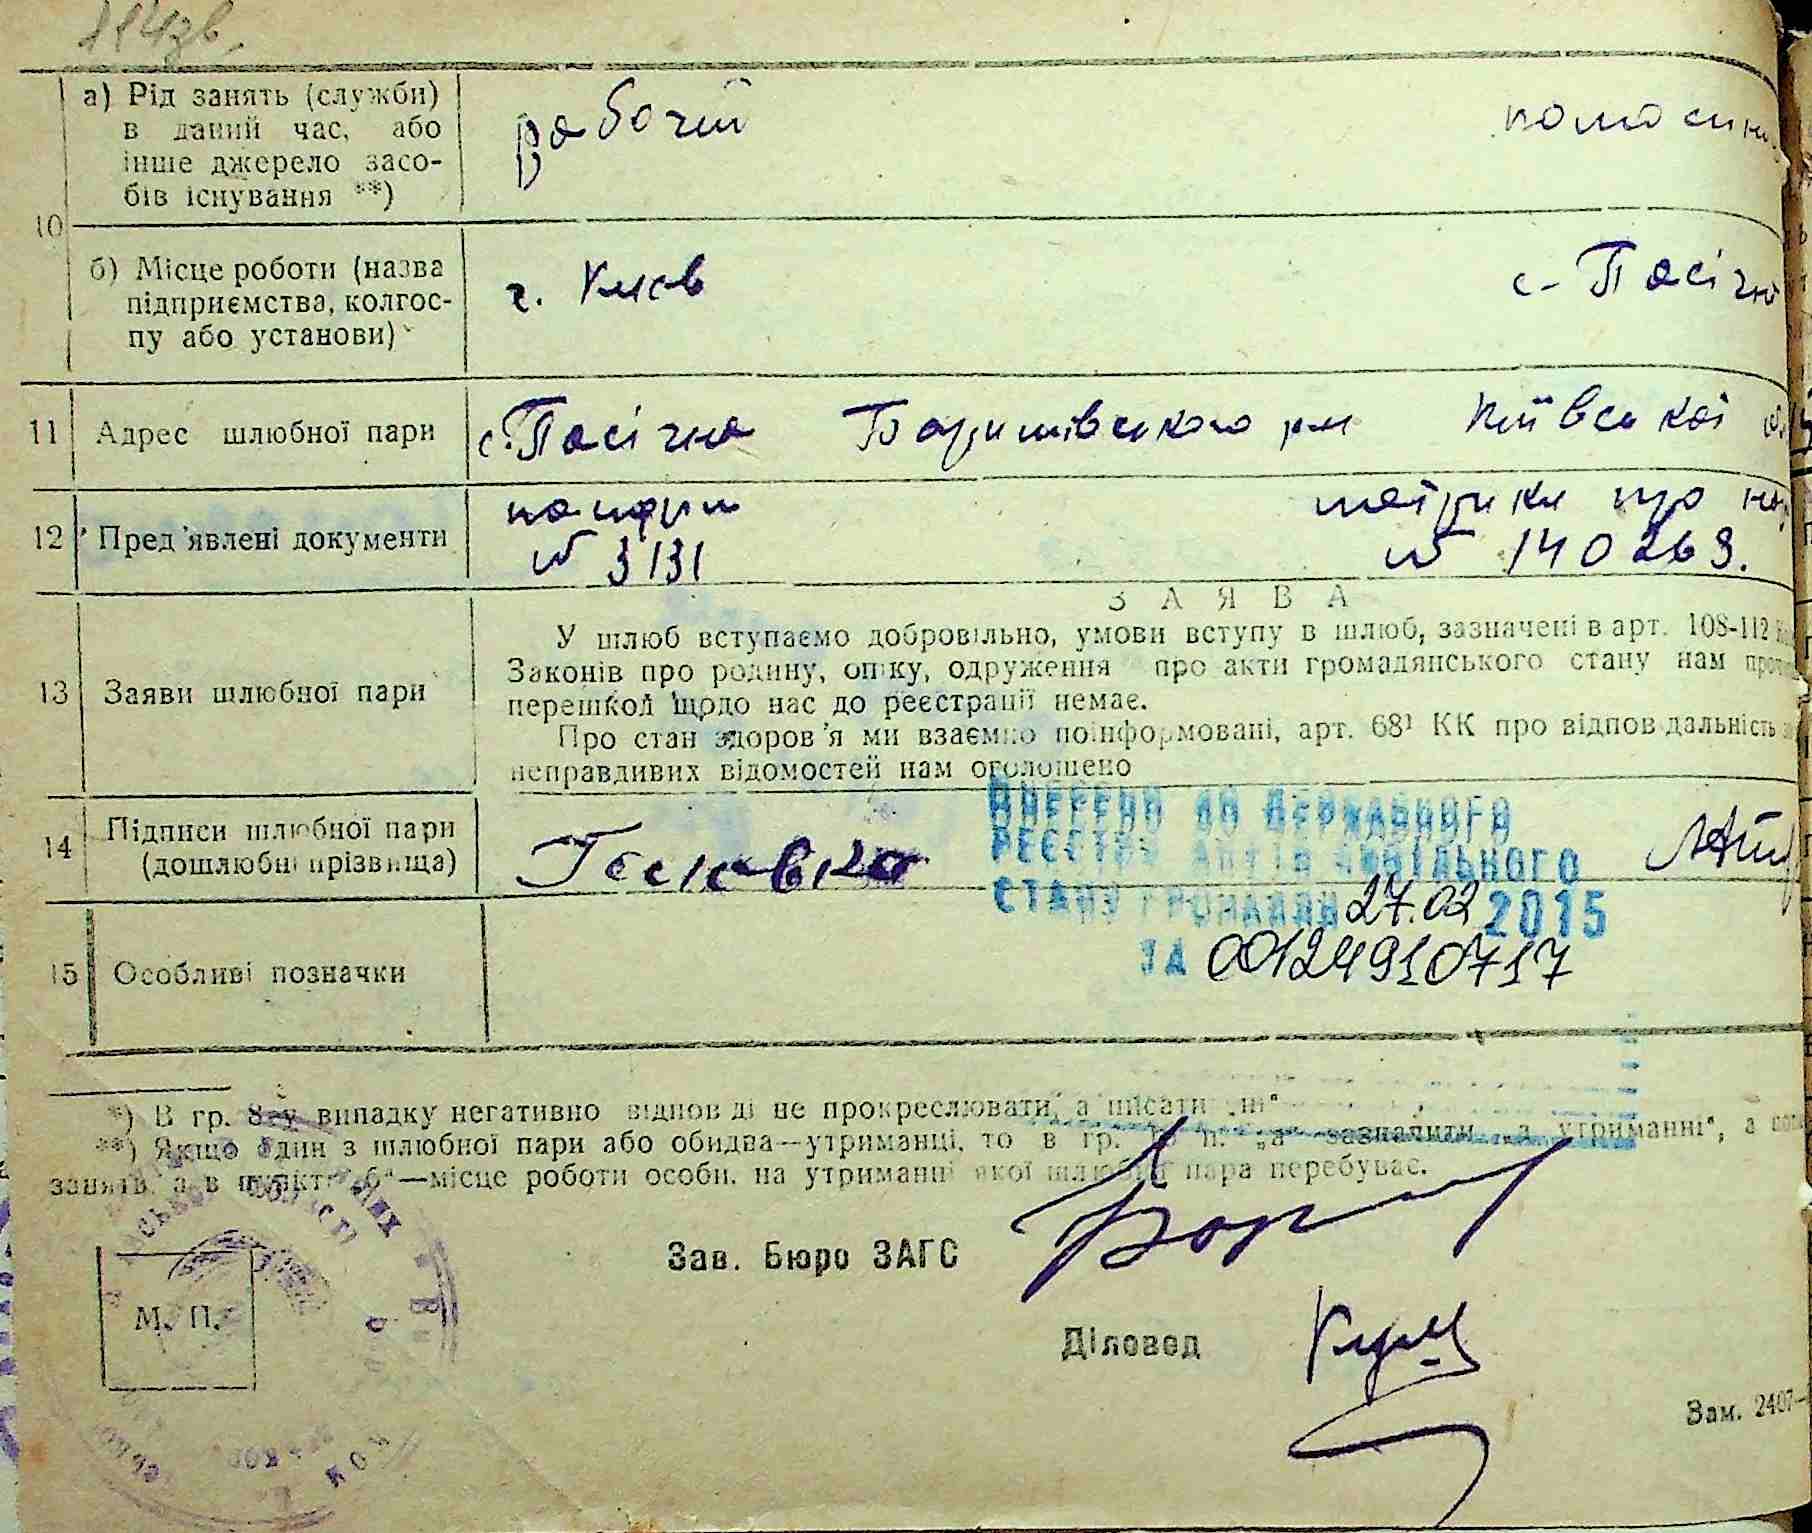 114зв.
10
а) Рід занять (служби)
в даний час, або
інше джерело засо-
бів існування **)
рабочий
б) Місце роботи (назва
підприємства, колгос-
пу або установи)
г. Киев
с. Пасічна
11 Адрес шлюбної пари
с. Пасічна Баришівського р-н Київської об
12 Пред'явлені документи
паспорт
№ 3131
метрики про на
№ 140269.
ЗАЯВА
13 Заяви шлюбної пари
У шлюб вступаємо добровільно, умови вступу в шлюб, зазначені в арт. 108-112
Законів про родину, опіку, одруження про акти громадянського стану нам
перешкод щодо нас до реєстрації немає.
Про стан здоров'я ми взаємно поінформовані, арт. 68¹ КК про відповідальність
неправдивих відомостей нам оголошено
14 Підписи шлюбної пари
(дошлюбні прізвища)
ВНЕСЕНО ДО ДЕРЖАВНОГО
РЕЄСТРУ АКТІВ ЦИВІЛЬНОГО
СТАНУ ГРОМАДЯН 27.02 2015
ЗА 00124910717
15 Особливі позначки
*) В гр. 8-у випадку негативно відповіді не прокреслювати, а писати „ні“
**) Якщо один з шлюбної пари або обидва—утриманці, то в гр. 10 п. „а“ зазначити „на утриманні“, а
занять, а в пункті „б“—місце роботи особи, на утриманні якої шлюбна пара перебуває.
Зав. Бюро ЗАГС
М. П.
Діловод
Зам. 2407—